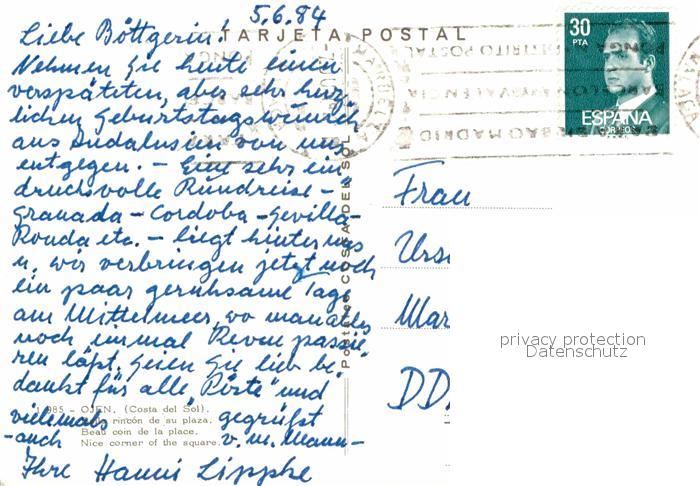 5.6.84
TARJETA POSTAL
Liebe Böttgerin!
Nehmen Sie heute einen
verspäteten, aber sehr herz-
lichen Geburtstagswunsch
aus Andalusien von uns
entgegen. – Eine sehr ein-
drucksvolle Rundreise –
Granada – Cordoba – Sevilla –
Ronda etc. – liegt hinter uns
u. wir verbringen jetzt noch
ein paar geruhsame Tage
am Mittelmeer, wo man alles
noch einmal Revue passie-
ren läßt. Seien Sie lieb be-
dankt für alle „Röste" und
vielemals gegrüßt
-auch v. m. Mann-
Ihre Hanni Lippke
985 - OJEN. (Costa del Sol).
rincón de su plaza.
Beau coin de la place.
Nice corner of the square.
Postales COSTA DEL SOL
30
PTA
ESPAÑA
CORREOS
MARBELLA
DISTRITO POSTAL
PONGA
BARCELONA VALENCIA
BILBAO MADRID
Frau
Urs
Mar
DD
privacy protection
Datenschutz